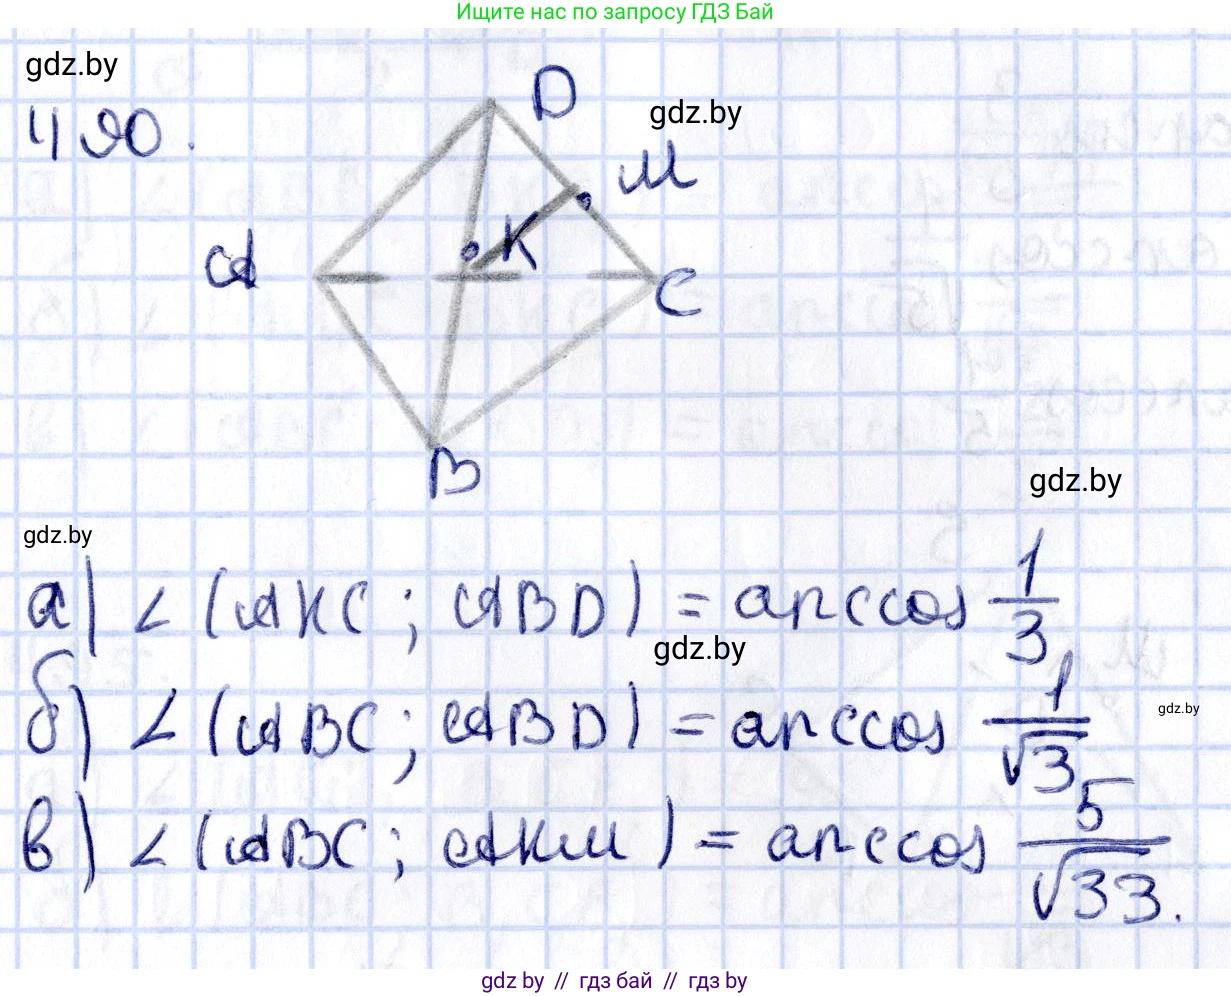 Ищите нас по запросу ГДЗ Бай
gdz.by
490.
D
gdz.by
M
A
K
C
B
gdz.by
gdz.by
а) ∠(AKC; ABD) = arccos 1/3
gdz.by
б) ∠(ABC; ABD) = arccos 1/√3
gdz.by
в) ∠(ABC; AKM) = arccos 5/√33.
gdz.by // гдз бай // gdz by